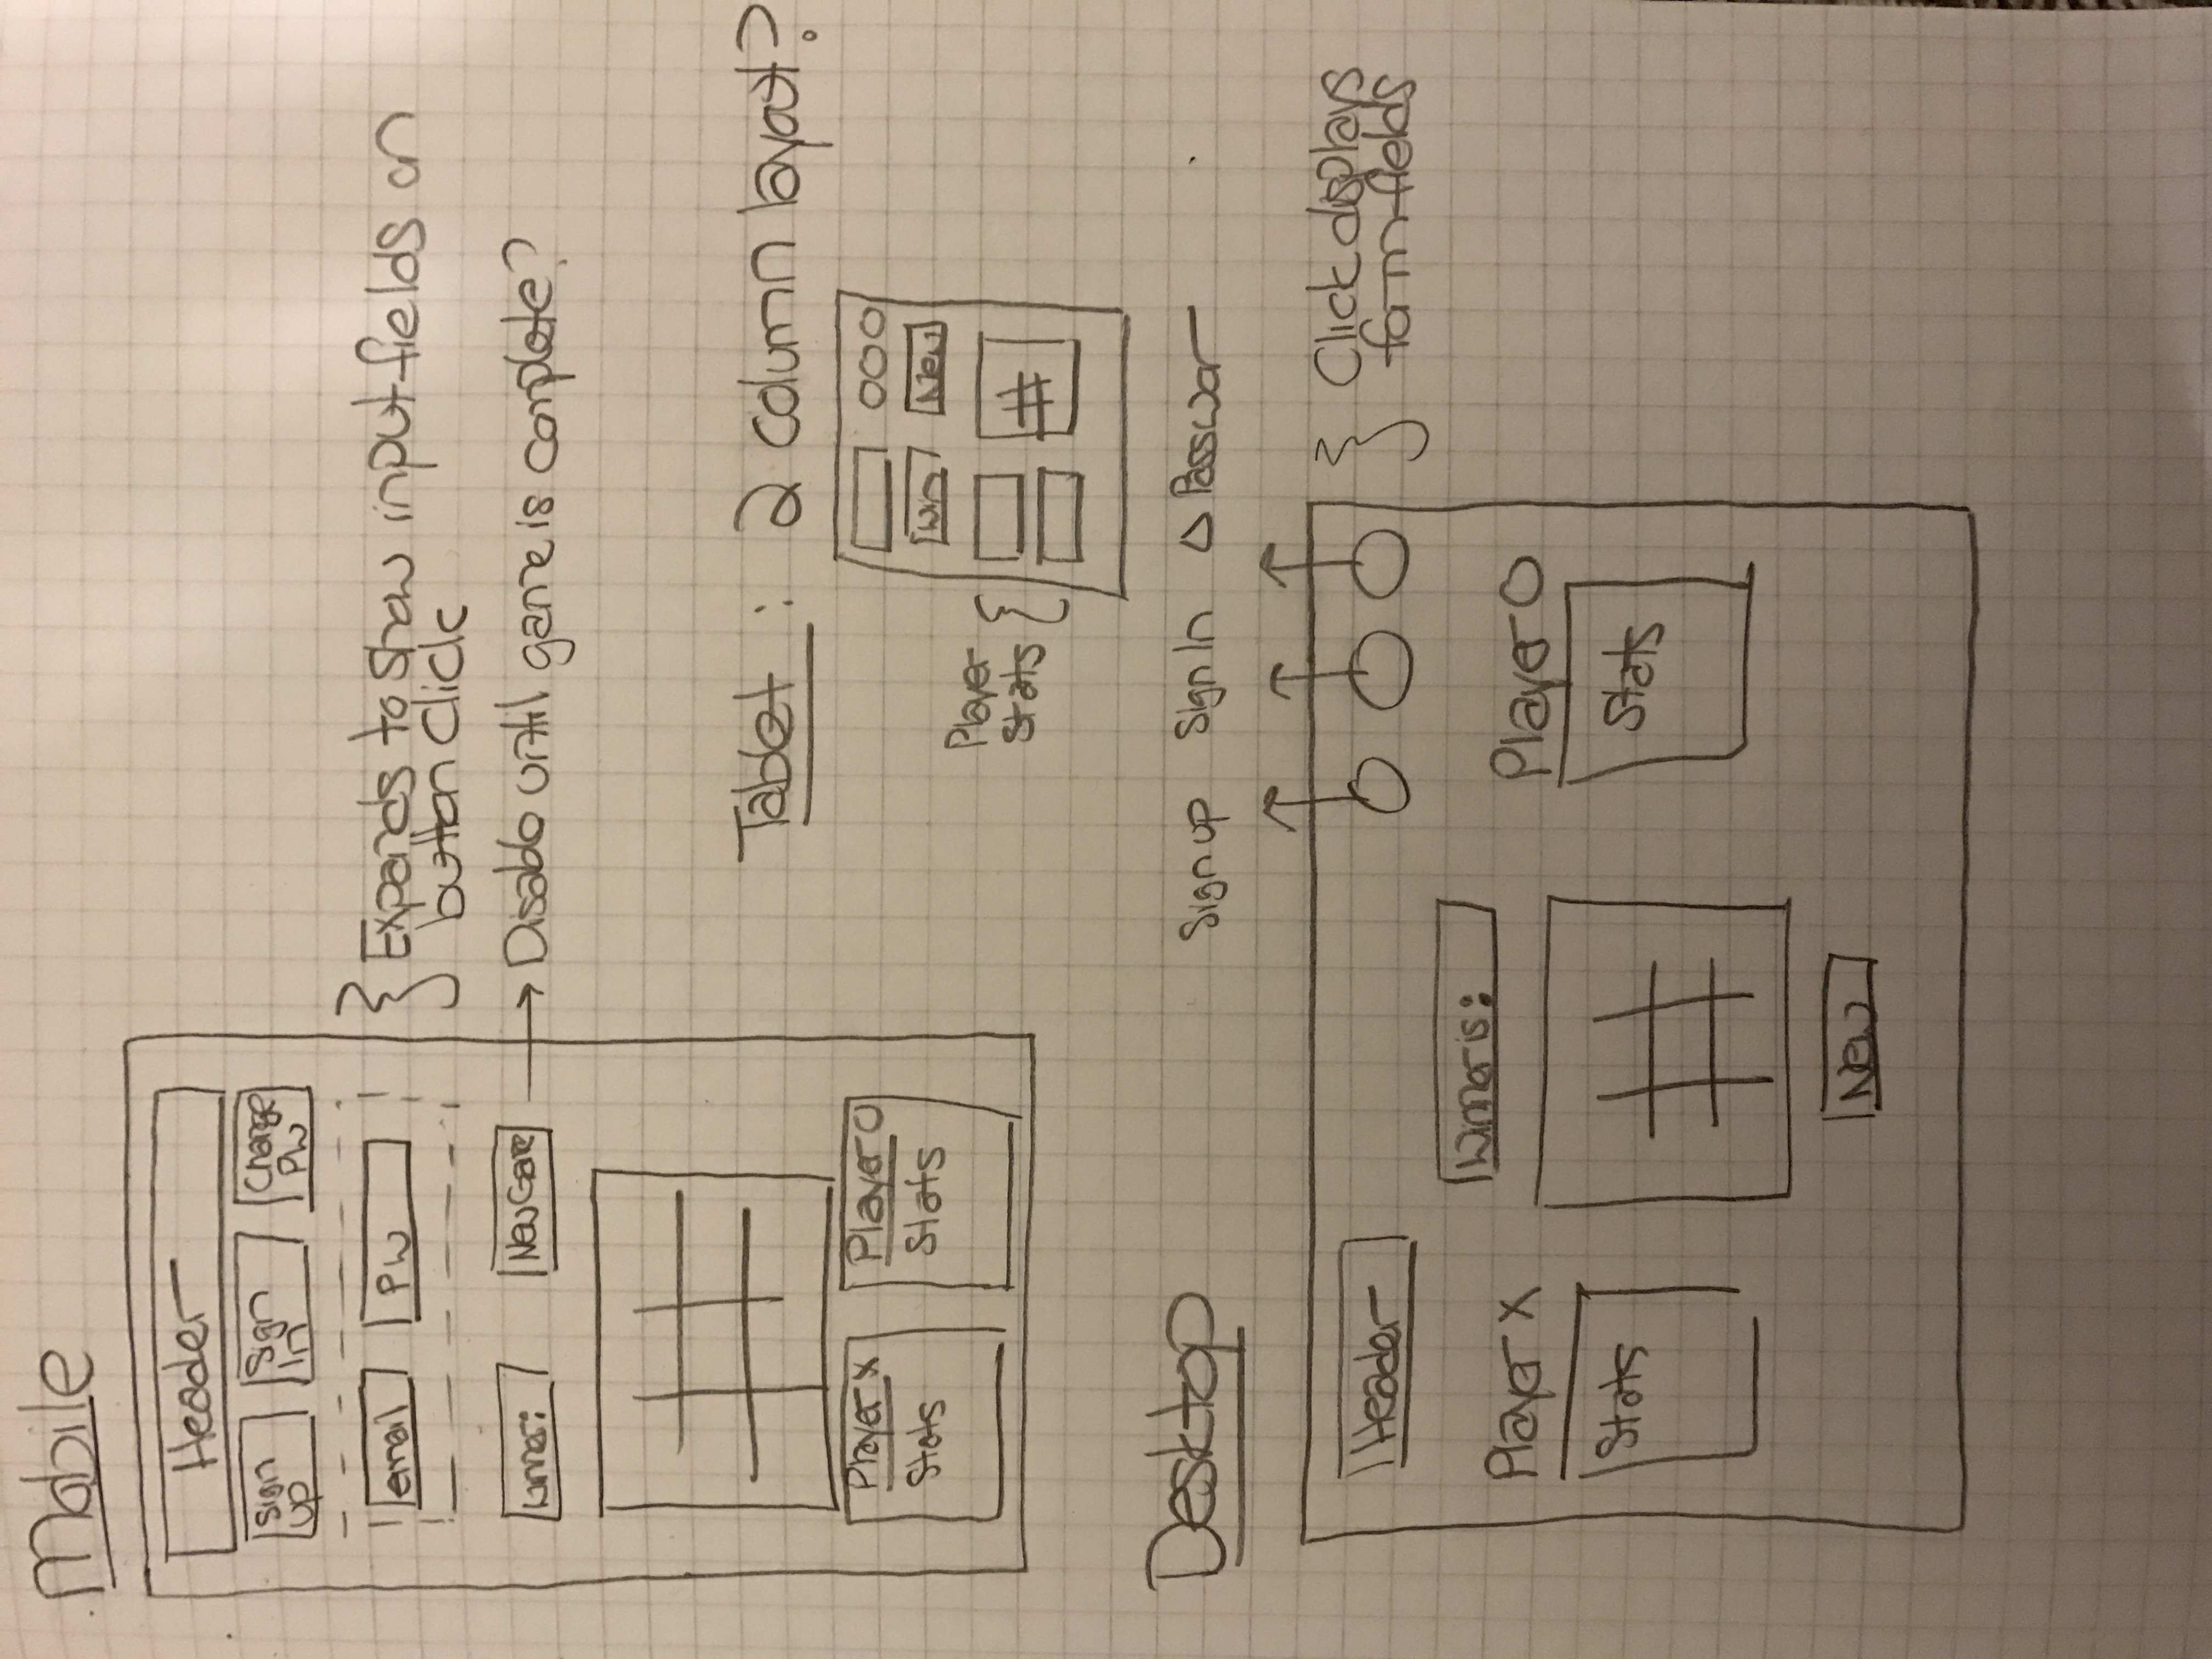 Mobile
Header
Sign up
Sign In
Change PW
email
PW
Expands to show input fields on
button click
Winner:
New Game
Disable until game is complete?
Player X
Stats
Player O
Stats
Tablet : 2 column layout?
Win
New
Player
Stats
Desktop
Sign up
Sign In
Δ Passwor
Header
Click displays
form fields
Winner is:
Player X
Player O
Stats
Stats
New